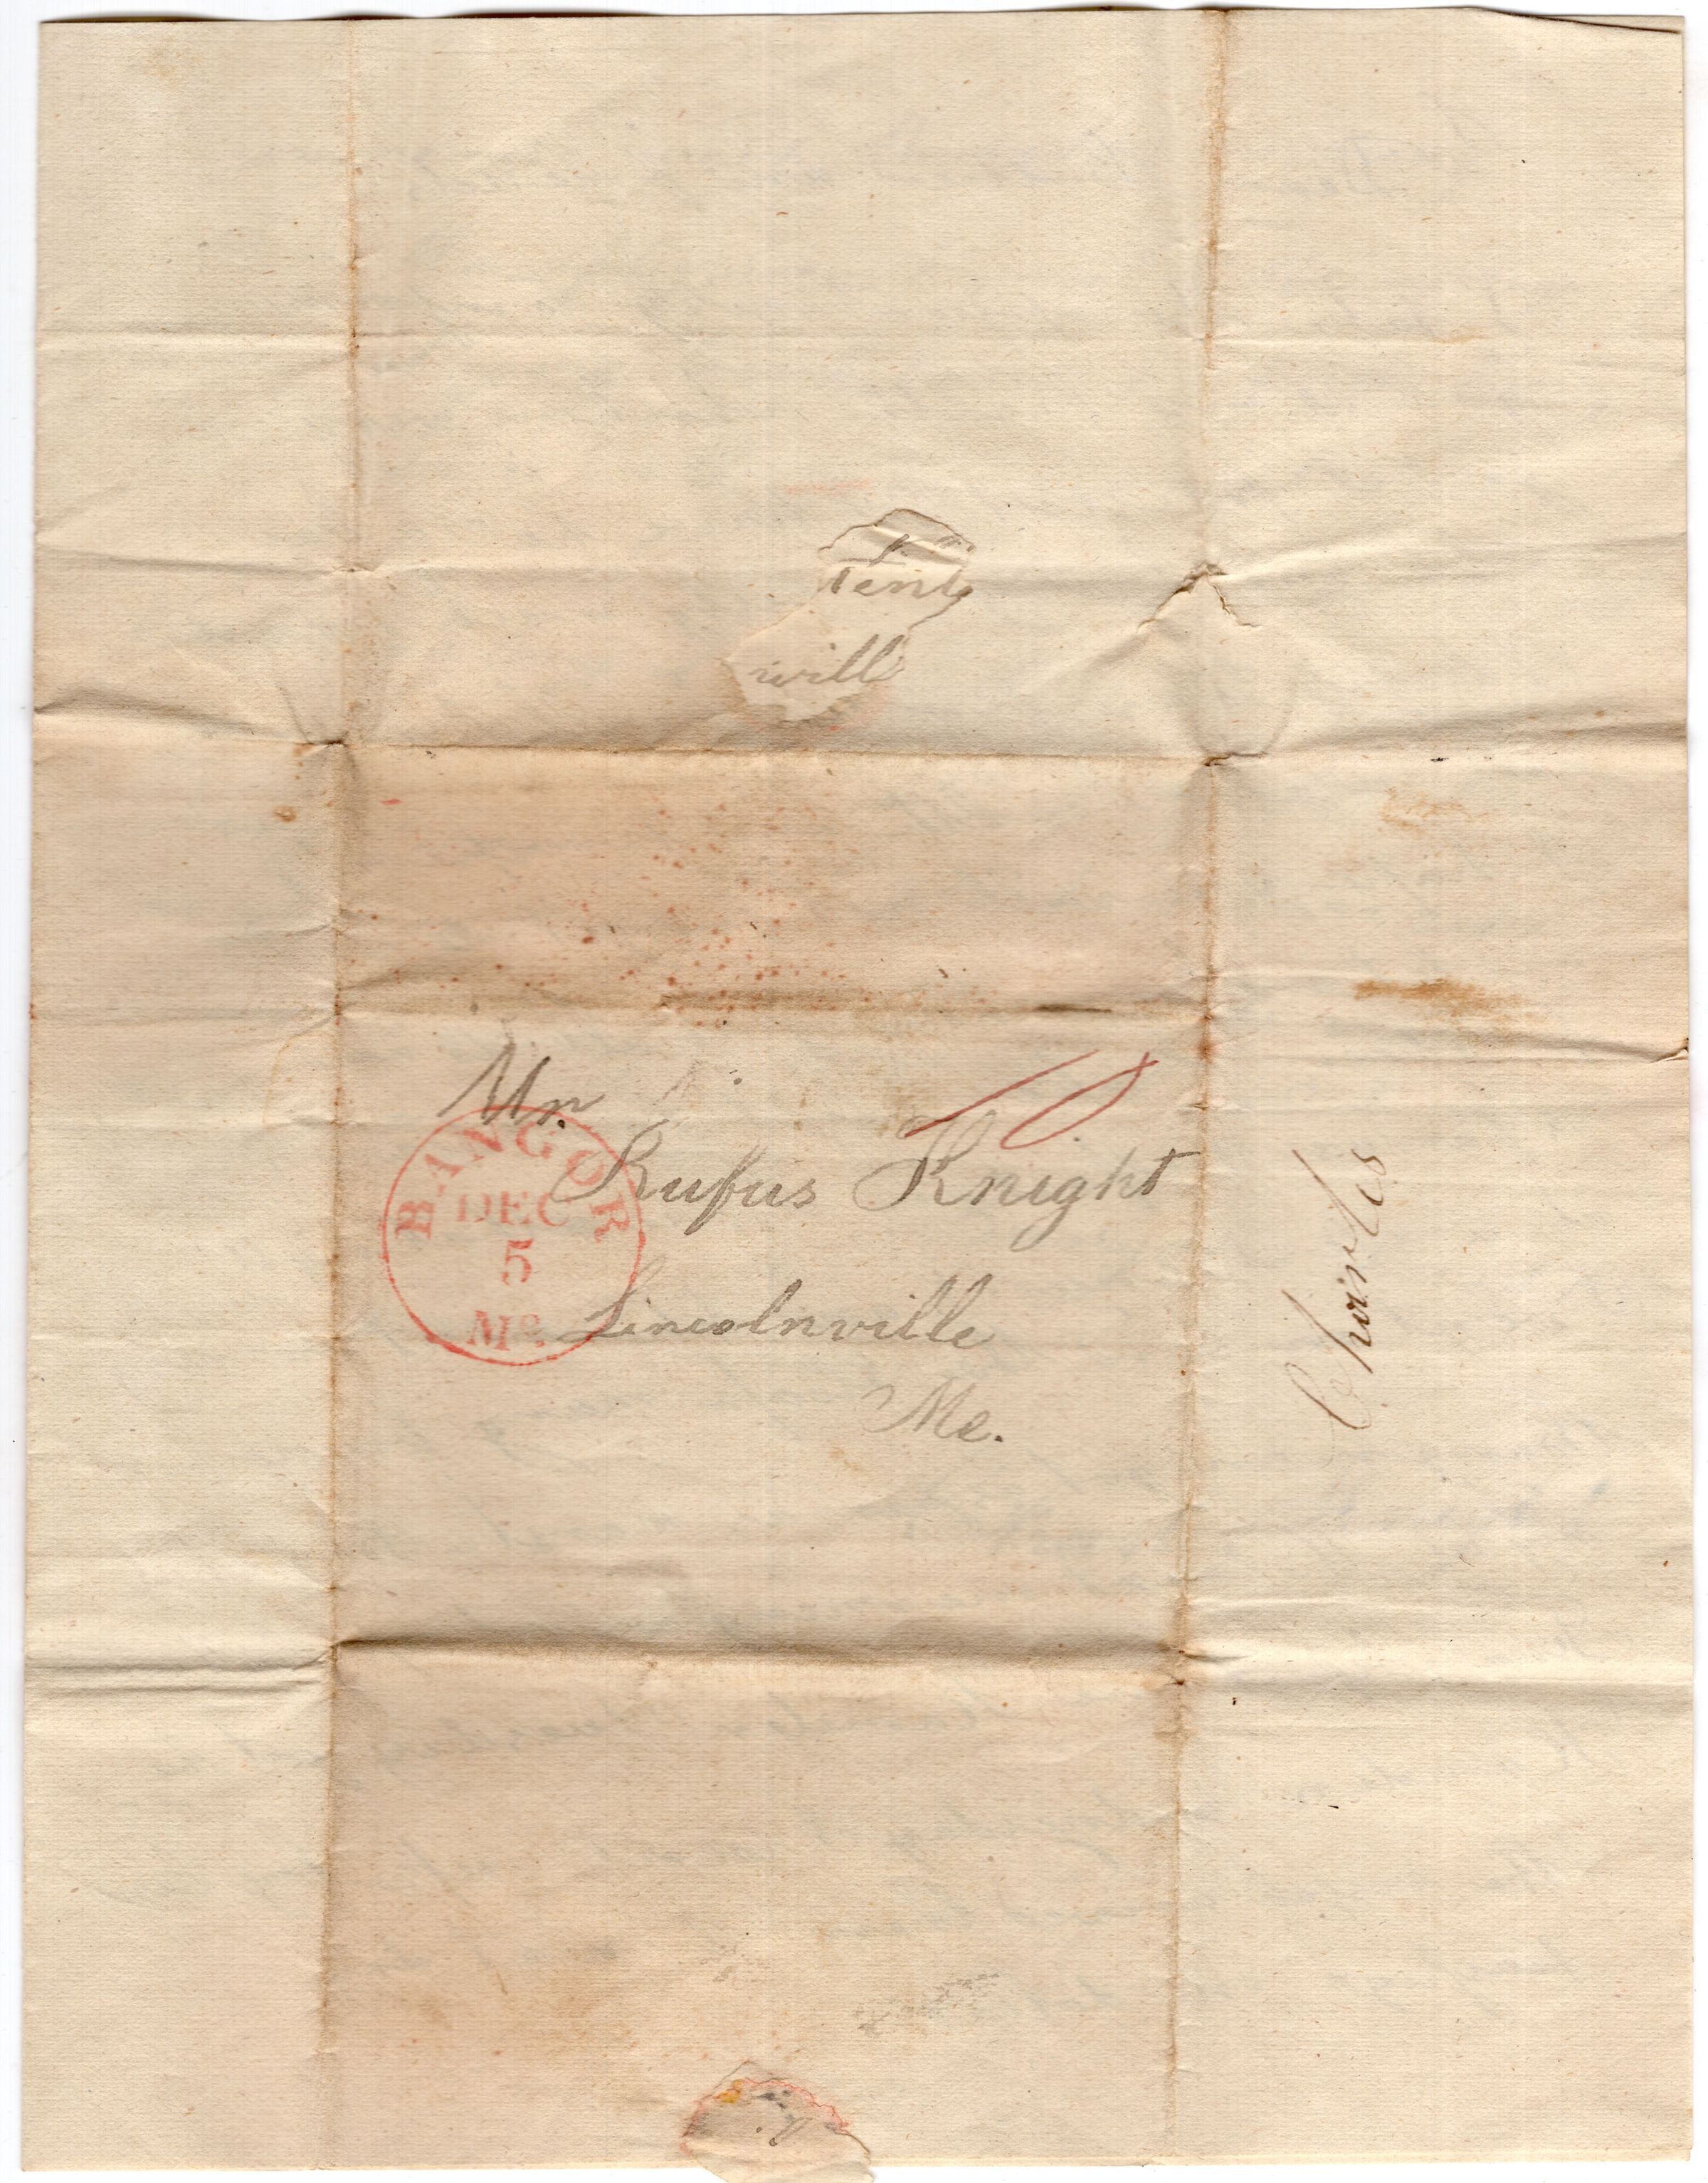 will
Mr.
10
Rufus Knight
Lincolnville
Me.
BANGOR
DEC
5
Me.
Charles